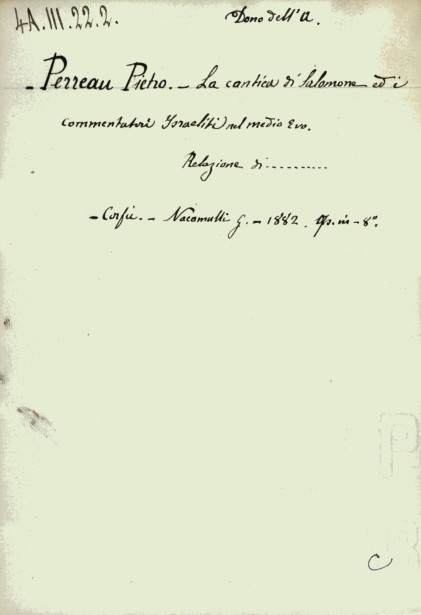 4A.III.22.2.
Dono dell'A.
- Perreau Pietro. - La cantica di Salomone ed i
commentatori Israeliti nel medio Evo.
Relazione di ..........
- Corfù. - Nacamulli G. - 1882. Op. in - 8º.
C